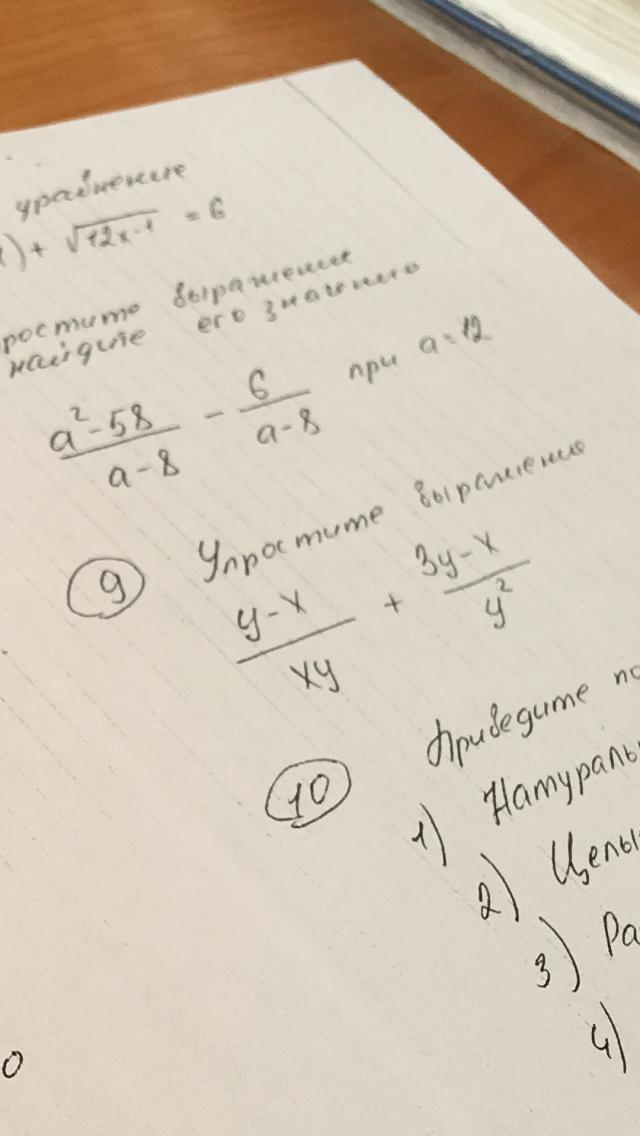 уравнение
) + √12x-1 = 6
ростите выражение
найдите его значение
a²-58/a-8 - 6/a-8 при a=12
9 Упростите выражение
y-x/xy + 3y-x/y²
10 Приведите по
1) Натураль
2) Целы
3) Ра
4)
0